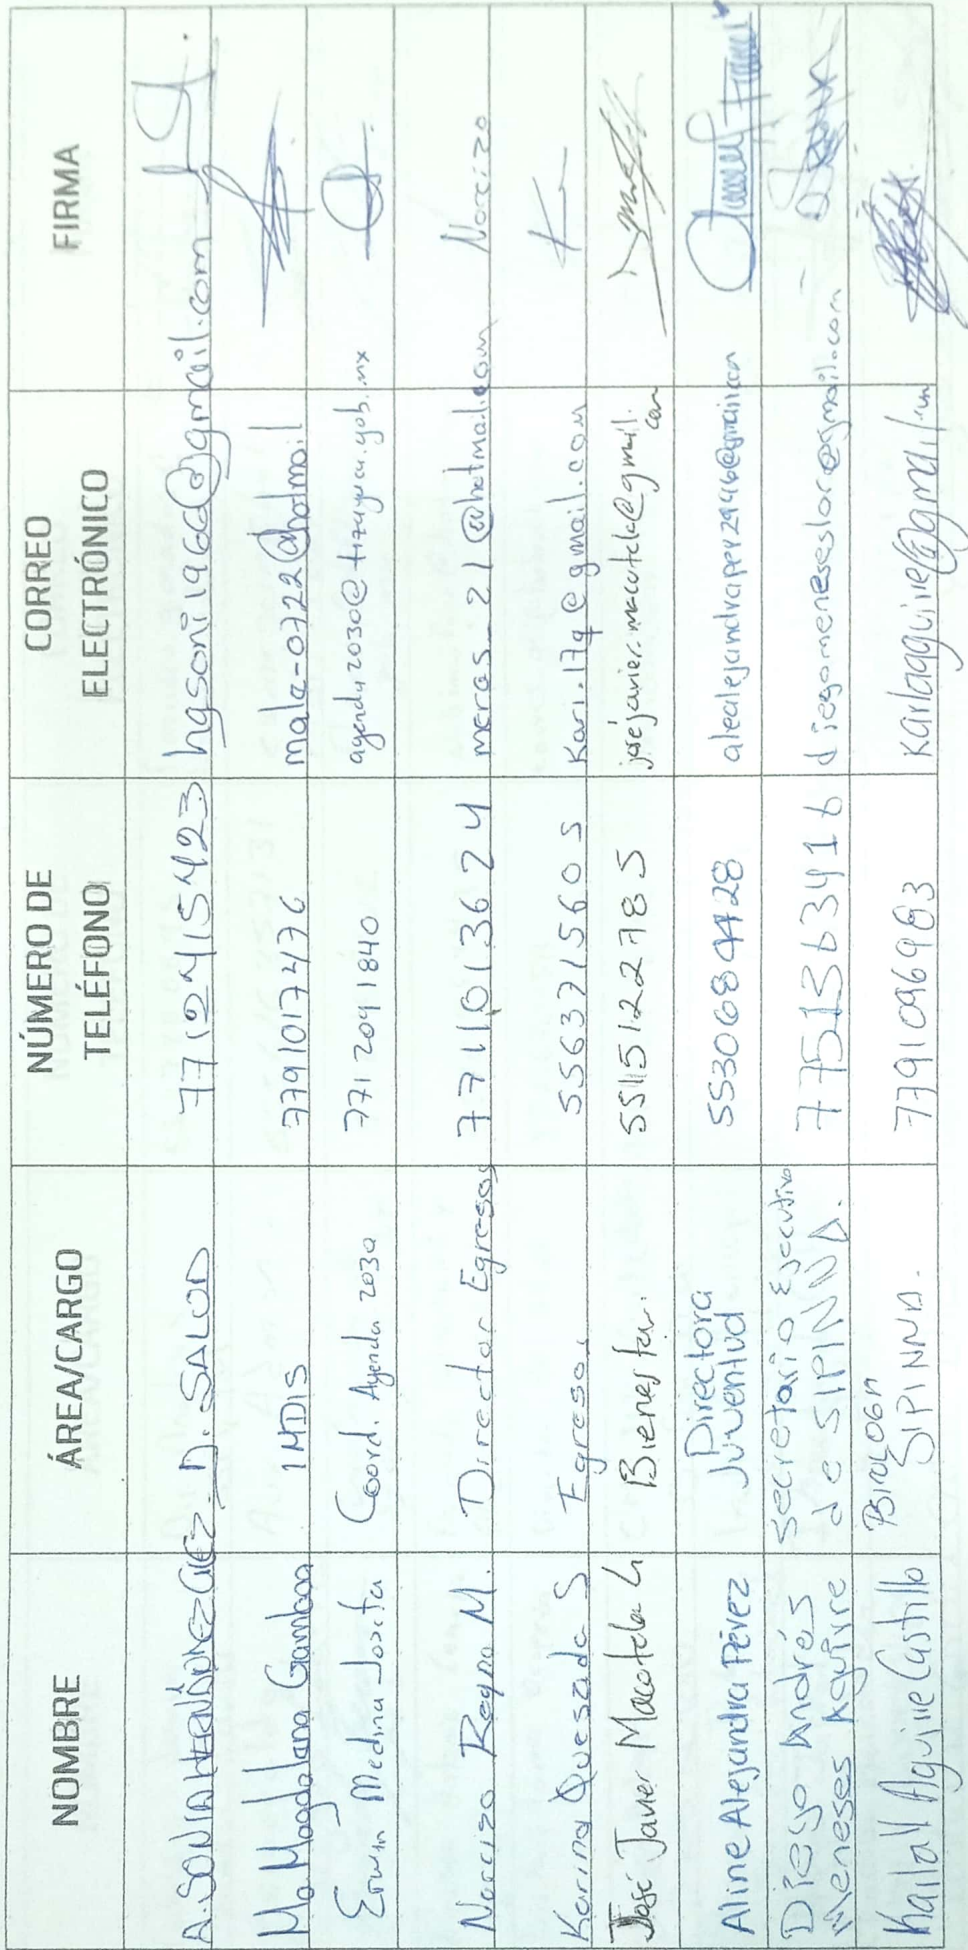 NOMBRE
ÁREA/CARGO
NÚMERO DE
TELÉFONO
CORREO
ELECTRÓNICO
FIRMA
A. SONIA HERNÁNDEZ GLEZ. D. SALUD 7712415423 hgsoni1966@gmail.com
Ma. Magdalena Gamboa IMDIS 7791017476 male-0722@hotmail
Erwin Medina Josefa Coord. Agenda 2030 771 2041840 agenda2030@tizayuca.gob.mx
Narcizo Reyna M. Director Egresos 7711013624 meras_21@hotmail.com Narcizo
Karina Quesada S Egresos 5563715605 Kari.17q@gmail.com
José Javier Macotela G Bienestar. 5515122785 joséjavier.macotela@gmail.
com
Aline Alejandra Pérez Directora
Juventud 5530684428 alealejandraper2996@gmail.com
Diego Andrés
Meneses Aguirre Secretario Ejecutivo
de SIPINNA. 7751363416 diegomeneseslor@gmail.com
Karla Y Aguirre Castillo
SIPINNA. 7791096983 Karlaaguirre@gmail.com